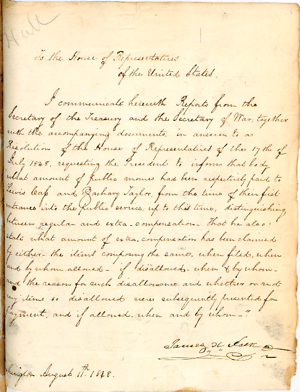 Hall
To the House of Representatives
of the United States.
I communicate herewith Reports from the
Secretary of the Treasury and the Secretary of War, together
with the accompanying documents, in answer to a
Resolution of the House of Representatives of the 17th of
July 1848, requesting the President to inform that body
what amount of public monies has been respectively paid to
Lewis Cass and Zachary Taylor, from the time of their first
entrance into the public service up to this time, distinguishing
between regular and extra compensation. That he also
state what amount of extra compensation has been claimed
by either; the items composing the same; when filed; when
and by whom allowed. If disallowed, when & by whom
and the reason for such disallowance and whether or not
any items so disallowed were subsequently presented for
payment, and if allowed, when and by whom."
James K Polk
August 11th 1848.